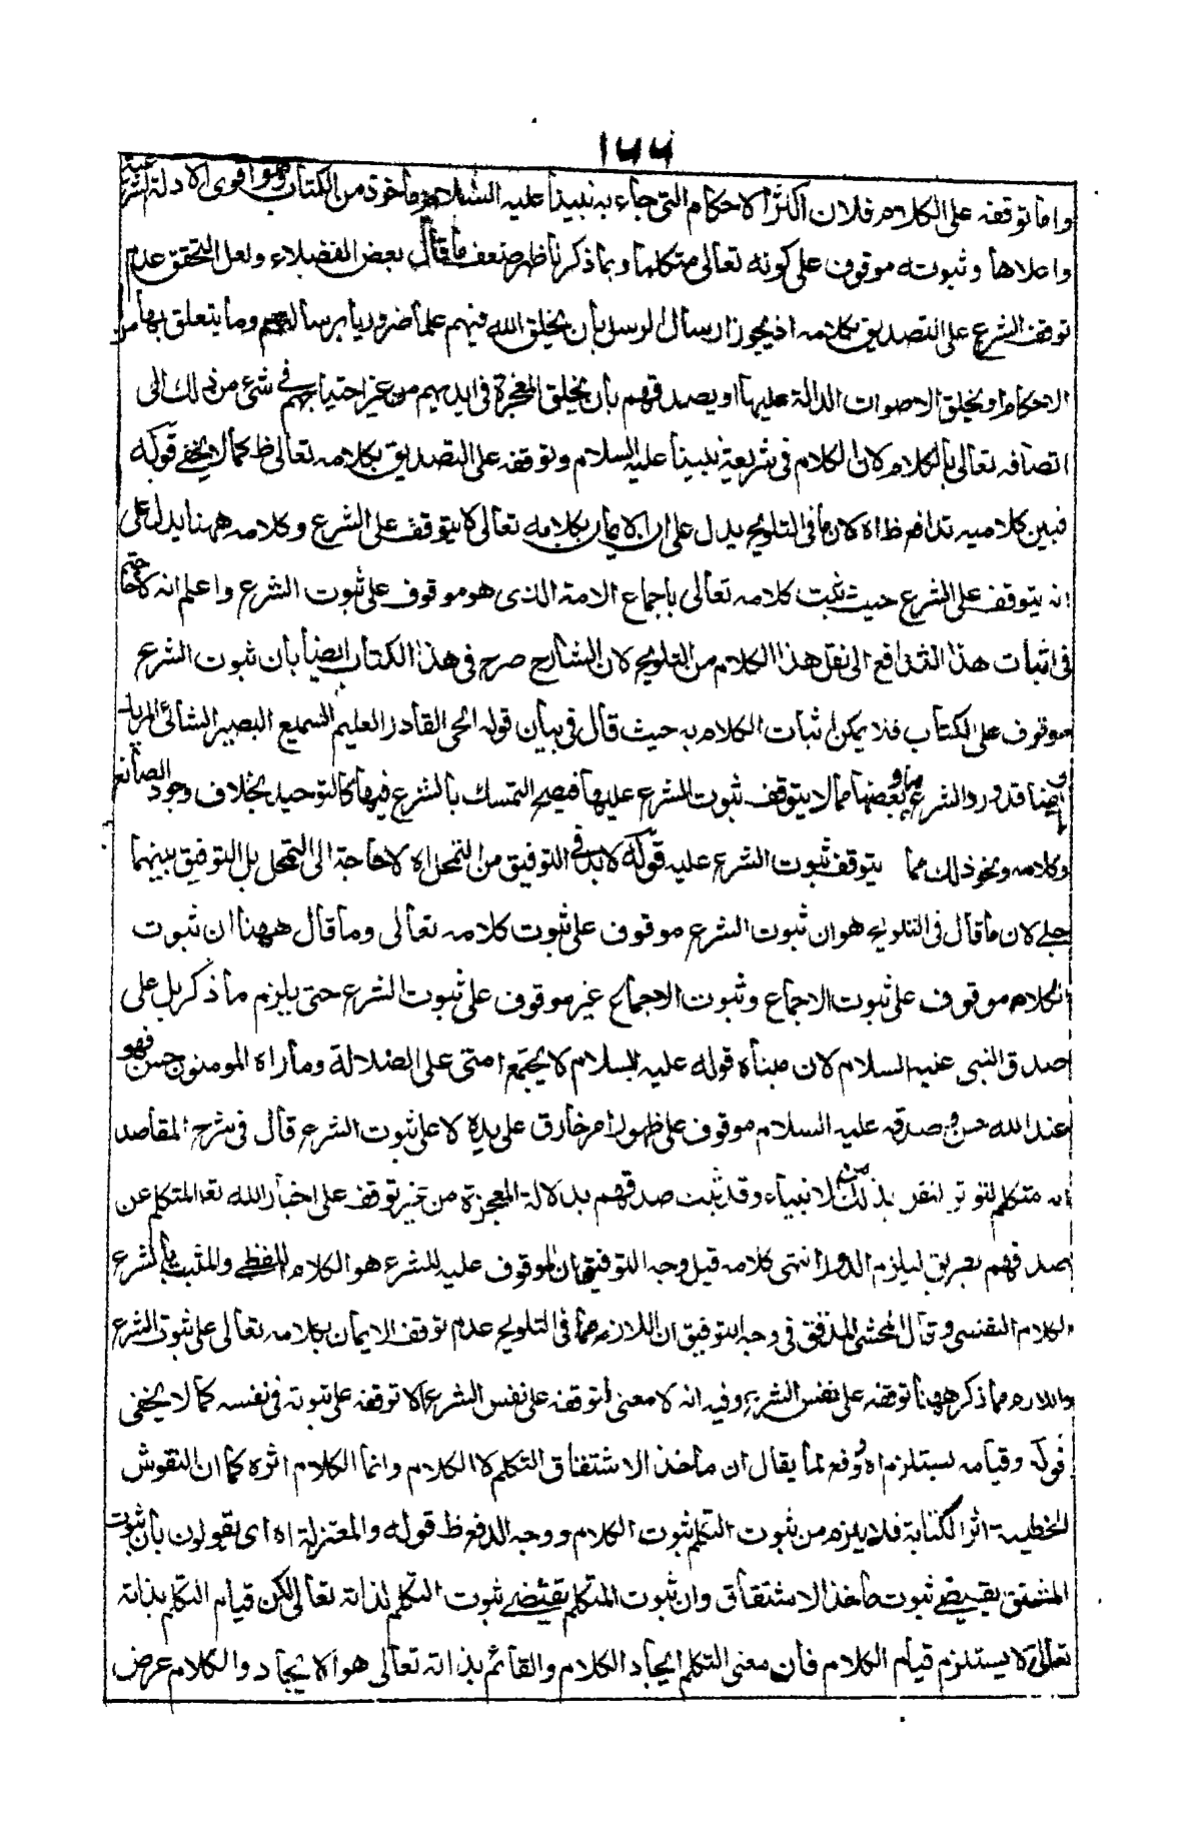 ١٧٧
واما توقفه على الكلام فلان اكثر الاحكام التى جاء به نبينا عليه السلام ماخوذ من الكتاب وهو اقوى الادلة الشرعية
واعلاها وثبوته موقوف على كونه تعالى متكلما وبما ذكرنا ظهر ضعف ما قال بعض الفضلاء ولعل التحقق عدم
توقف الشرع على التصديق بكلامه اذ يجوز ارسال الرسل بان يخلق الله فيهم علما ضروريا برسالتهم وما يتعلق بها من
الاحكام او يخلق الاصوات الدالة عليها او يصدقهم بان يخلق المعجزة فى ايديهم من غير احتياجهم فى شئ من ذلك الى
اتصافه تعالى بالكلام كان الكلام فى شريعة نبينا عليه السلام وتوقفه على التصديق بكلامه تعالى ظ كما لا يخفى قوله
فبين كلاميه تدافع ظ اه لان ما فى التلويح يدل على ان الايمان بكلامه تعالى لا يتوقف على الشرع وكلامه ههنا يدل على
انه يتوقف على الشرع حيث ثبت كلامه تعالى باجماع الامة الذى هو موقوف على ثبوت الشرع واعلم انه لا حاجة
فى اثبات هذا التدافع الى نقل هذا الكلام من التلويح لان الشارح صرح فى هذا الكتاب ايضا بان ثبوت الشرع
موقوف على الكتاب فلا يمكن اثبات الكلام به حيث قال فى بيان قوله الحى القادر العليم السميع البصير الشائى المريد
وايضا قد ورد الشرع بها وبعضها مما لا يتوقف ثبوت الشرع عليها فيصح التمسك بالشرع فيها كالتوحيد بخلاف وجود الصانع
وكلامه ونحو ذلك مما يتوقف ثبوت الشرع عليه قوله لابد فى التوفيق من التمحل اه لا حاجة الى التمحل بل التوفيق بينهما
جلى لان ما قال فى التلويح هو ان ثبوت الشرع موقوف على ثبوت كلامه تعالى وما قال ههنا ان ثبوت
الكلام موقوف على ثبوت الاجماع وثبوت الاجماع غير موقوف على ثبوت الشرع حتى يلزم ما ذكر بل على
صدق النبى عليه السلام لان مبناه قوله عليه السلام لا يجتمع امتى على الضلالة وما راه المومنون حسن فهو
عند الله حسن وصدقه عليه السلام موقوف على ظهور امر خارق على يده لا على ثبوت الشرع قال فى شرح المقاصد
انه متكلم لتواتر النقل بذلك من الانبياء وقد ثبت صدقهم بدلالة المعجزة من غير توقف على اخبار الله تعا المتكلم عن
صدقهم بطريق ليلزم الدور انتهى كلامه قيل وجه التوفيق ان الموقوف عليه للشرع هو الكلام اللفظى والمثبت بالشرع
الكلام النفسى وقال المحشى المدقق فى وجه التوفيق ان اللازم مما فى التلويح عدم توقف الايمان بكلامه تعالى على ثبوت الشرع
واللازم مما ذكر ههنا توقفه على نفس الشرع وفيه انه لا معنى لتوقفه على نفس الشرع الا توقفه على ثبوته فى نفسه كما لا يخفى
قوله وقيامه يستلزم اه دفع لما يقال ان ماخذ الاشتقاق التكلم لا الكلام وانما الكلام اثره كما ان النقوش
الخطية اثر الكتابة فلا يلزم من ثبوت التكلم ثبوت الكلام ووجه الدفع ظ قوله والمعتزلة اه اى يقولون بان ثبوت
المشتق يقتضى ثبوت ماخذ الاشتقاق وان ثبوت المتكلم يقتضى ثبوت التكلم لذاته تعالى لكن قيام التكلم بذاته
تعالى لا يستلزم قيام الكلام فان معنى التكلم ايجاد الكلام والقائم بذاته تعالى هو الايجاد والكلام عرض